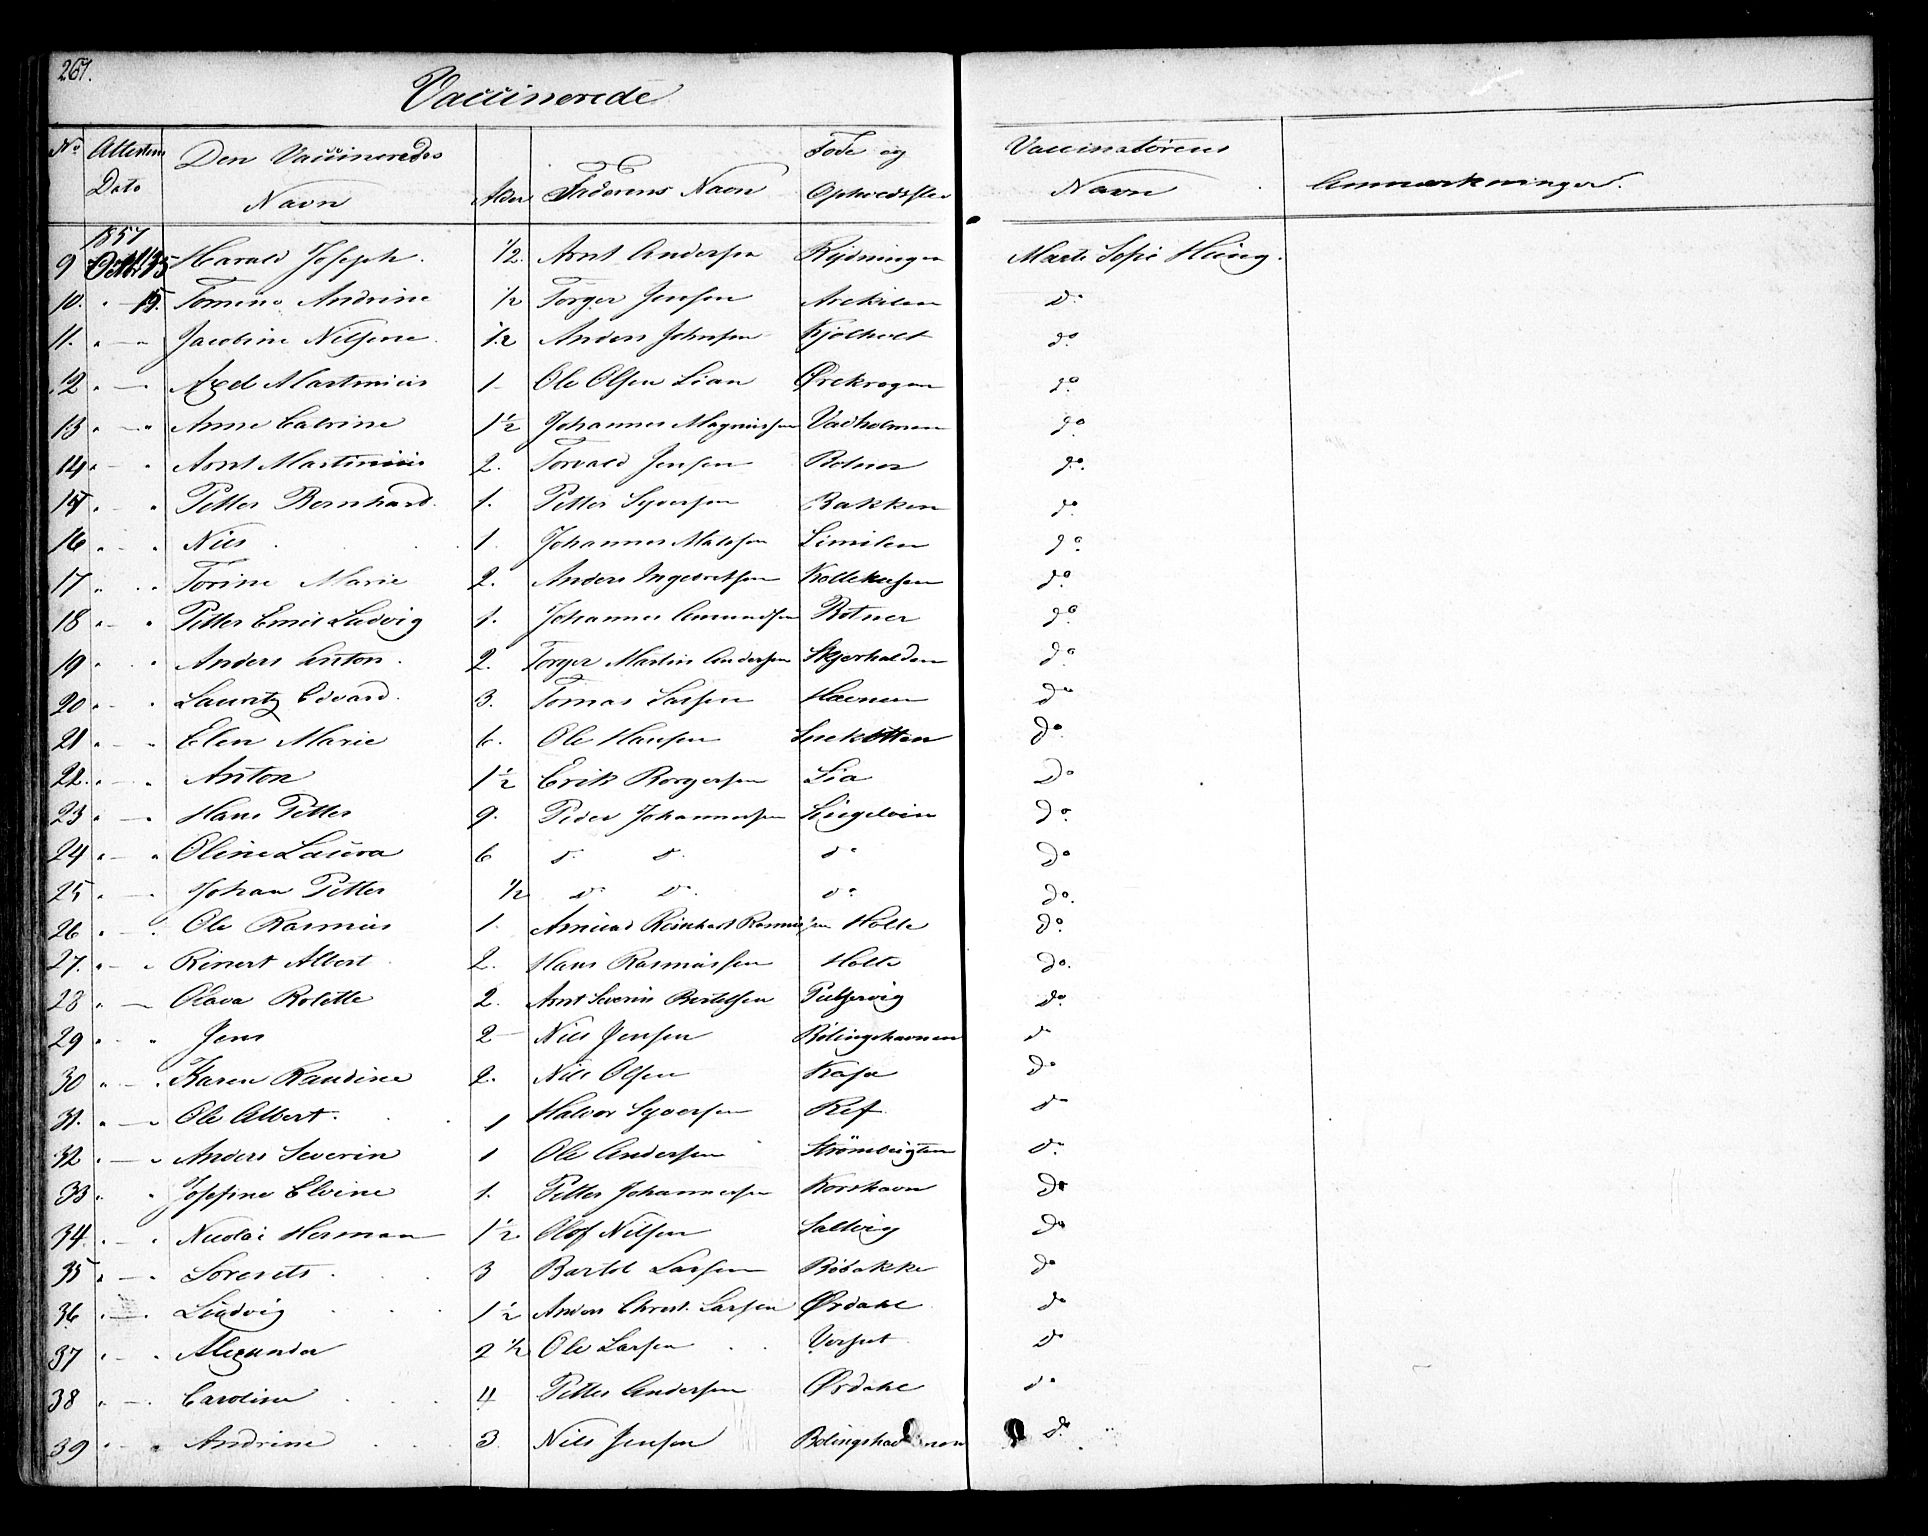 267.
Vaccinerede
No Attestens Dato Den Vaccineredes Navn Alder Faderens Navn Føde og Opholdssted Vaccinatørens Navn Anmærkninger.
1857
9 Octbr 15 Harald Joseph. 1/2. Arnt Andersen Rydningen Marte Sofie
10. " 15. Andrine 1/2 Torger Jensen do
11. " — " Jacobine Nilsene. 1/2 Anders Johnsen Kjølholt do
12 " — " Axel Martinius 1 - Ole Olsen Lian Ørekrogen do
13 " — " Anne Catrine 1 1/2 Johannes Magnussen Vadholmen do
14 " - " Arnt Martinius 2. Torvald Jensen Botner do.
15 " - " Petter Bernhard. 1. Petter Syversen Bakken do
16 " - " Nils 1 Johannes do
17 " " Torine Marie 2. Anders Ingebretsen do
18 " - " Petter Emil Ludvig 1. Johannes Amundsen Botner do
19 " " Anders Anton. 2. Torger Martin Andersen Skjerhalden do
20 " - " Lauritz Edvard. 3. Tomas Larsen Havnen do
21 " - " Elen Marie 6. Ole Hansen do
22. " " Anton 1 1/2 Erik Borgersen Lia Do
23 " — " Hans Petter 9. Peder Johannessen do
24 " — " Oline Laura 6 d. d. do do
25 " — " Johan Petter 1/2 do do. do do.
26 " - " Ole Rasmus 1. Reinhart Rasmussen Holte do
27. " — " Rinert Albert 2. Hans Rasmussen Holte do.
28 " — Olava Bolette 2. Arnt Severin Bertelsen do
29 " - " Jens 2 — Nils Jensen Bølingshavnen do
30 " — " Karen Randine 2. Nils Olsen Kasa do
31. " — " Ole Albert. 1 Halvor Syversen Ref do
32 " — " Anders Severin 1 Ole Andersen do
33 " " Josefine Elvine 1. Petter Johannessen Korshavn do
34 " - " Nicolai Herman 1 1/2 Olof Nilsen do
35 " — " 3 Bartel Larsen Røbakke do
36 " — " Ludvig 1 1/2 Anders Christ. Larsen Ørdahl do
37 " - " Alexander 2 1/2 Ole Larsen do
38 " — " Caroline 4 Petter Andersen Ørdahl do
39 " - " Andrine 3. Nils Jensen Bølingshavnen do